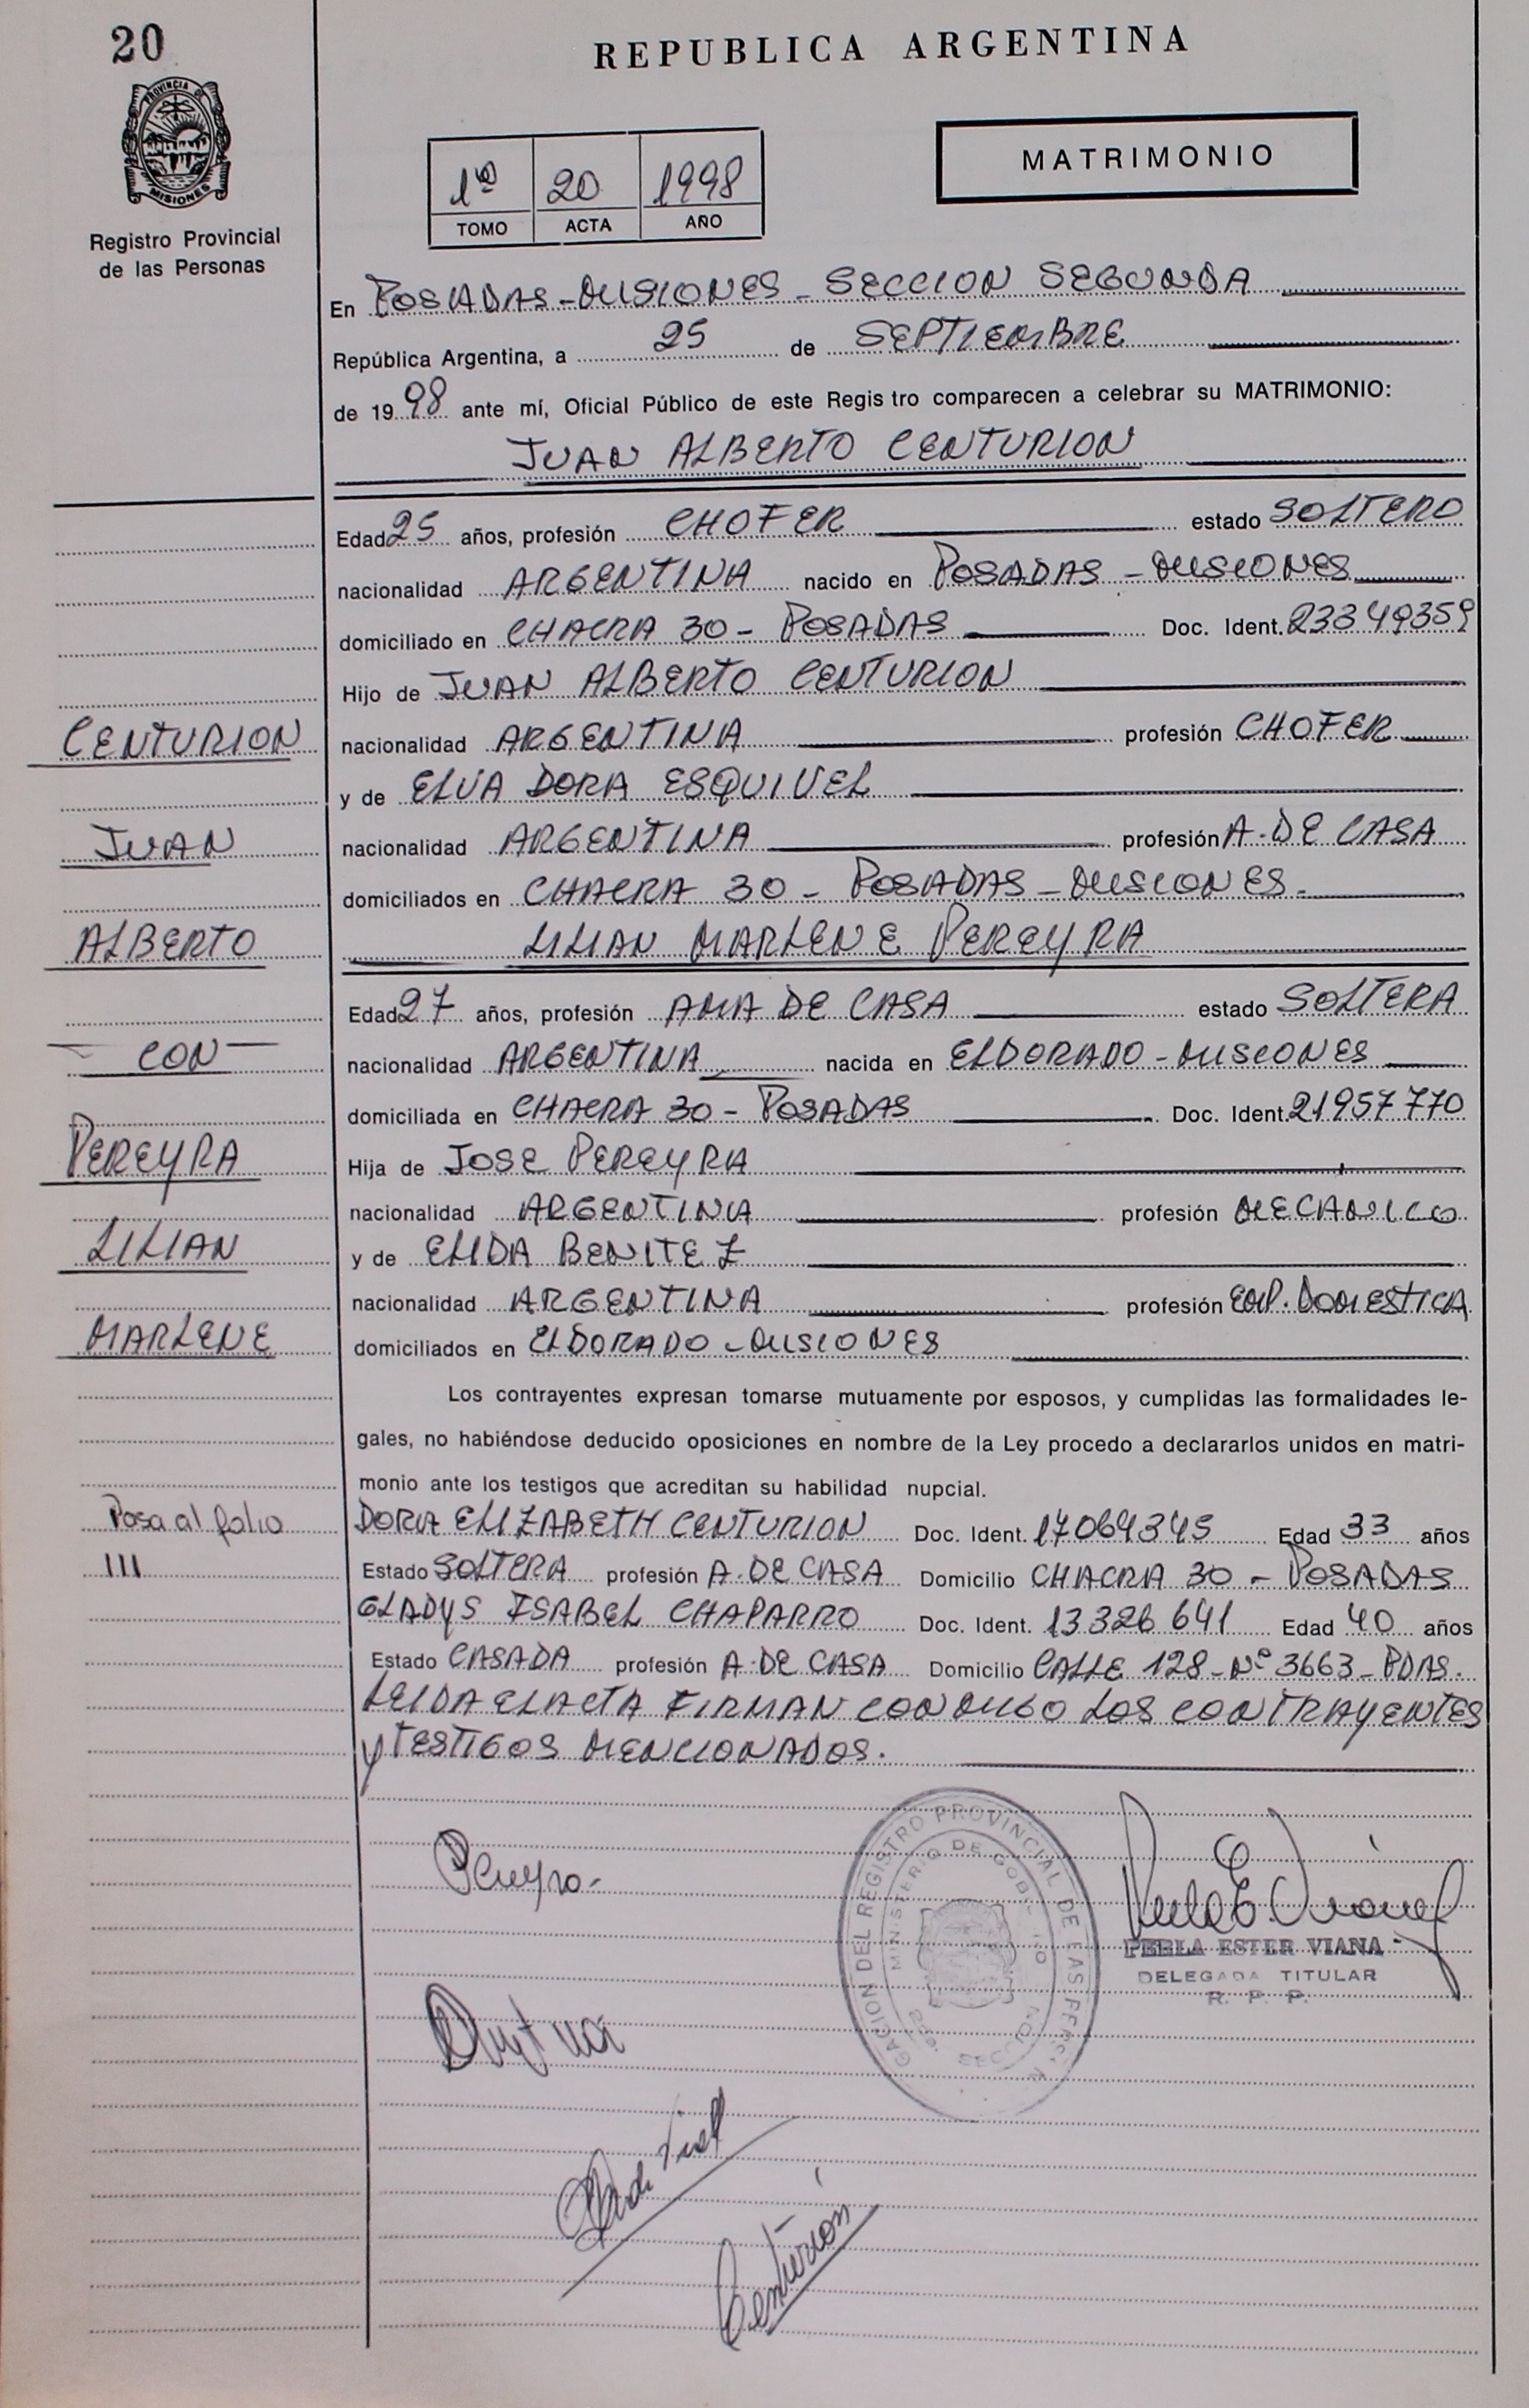 20
REPUBLICA ARGENTINA
PROVINCIA DE
MISIONES
Registro Provincial
de las Personas
1º 20 1998
TOMO ACTA AÑO
MATRIMONIO
En POSADAS - MISIONES - SECCION SEGUNDA
República Argentina, a 25 de SEPTIEMBRE
de 1998 ante mí, Oficial Público de este Regis tro comparecen a celebrar su MATRIMONIO:
JUAN ALBERTO CENTURION
Edad 25 años, profesión CHOFER estado SOLTERO
nacionalidad ARGENTINA nacido en POSADAS - MISIONES
domiciliado en CHACRA 30 - POSADAS Doc. Ident. 23349359
Hijo de JUAN ALBERTO CENTURION
CENTURION
nacionalidad ARGENTINA profesión CHOFER
y de ELVA DORA ESQUIVEL
JUAN
nacionalidad ARGENTINA profesión A. DE CASA
domiciliados en CHACRA 30 - POSADAS - MISIONES -
ALBERTO
LILIAN MARLENE PEREYRA
Edad 27 años, profesión AMA DE CASA estado SOLTERA
CON
nacionalidad ARGENTINA nacida en ELDORADO - MISIONES
domiciliada en CHACRA 30 - POSADAS Doc. Ident. 21957770
PEREYRA
Hija de JOSE PEREYRA
nacionalidad ARGENTINA profesión MECANICO
LILIAN
y de ELIDA BENITEZ
nacionalidad ARGENTINA profesión EMP. DOMESTICA
MARLENE
domiciliados en ELDORADO - MISIONES
Los contrayentes expresan tomarse mutuamente por esposos, y cumplidas las formalidades le-
gales, no habiéndose deducido oposiciones en nombre de la Ley procedo a declararlos unidos en matri-
monio ante los testigos que acreditan su habilidad nupcial.
Pasa al folio
111
DORA ELIZABETH CENTURION Doc. Ident. 17064345 Edad 33 años
Estado SOLTERA profesión A. DE CASA Domicilio CHACRA 30 - POSADAS
GLADYS ISABEL CHAPARRO Doc. Ident. 13326641 Edad 40 años
Estado CASADA profesión A. DE CASA Domicilio CALLE 128 - Nº 3663 - PDAS.
LEIDA EL ACTA FIRMAN CONMIGO LOS CONTRAYENTES
Y TESTIGOS MENCIONADOS.
Pereyra-
GACION DEL REGISTRO PROVINCIAL DE LAS
MINISTERIO DE
PERLA ESTER VIANA
DELEGADA TITULAR
R. P. P.
Centurión